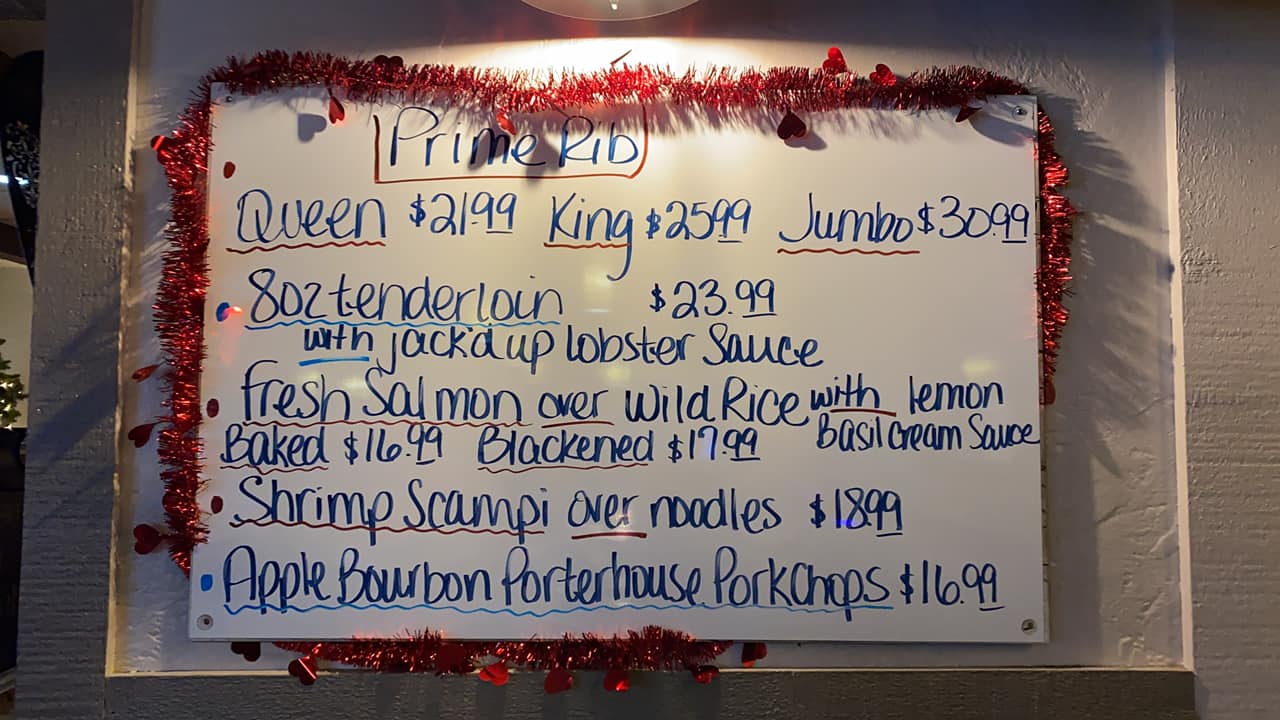 Prime Rib
Queen $21.99 King $25.99 Jumbo $30.99
8oz tenderloin $23.99
with jack'd up lobster Sauce
Fresh Salmon over Wild Rice with lemon
Baked $16.99 Blackened $17.99 Basil Cream Sauce
Shrimp Scampi over noodles $18.99
Apple Bourbon Porterhouse PorkChops $16.99